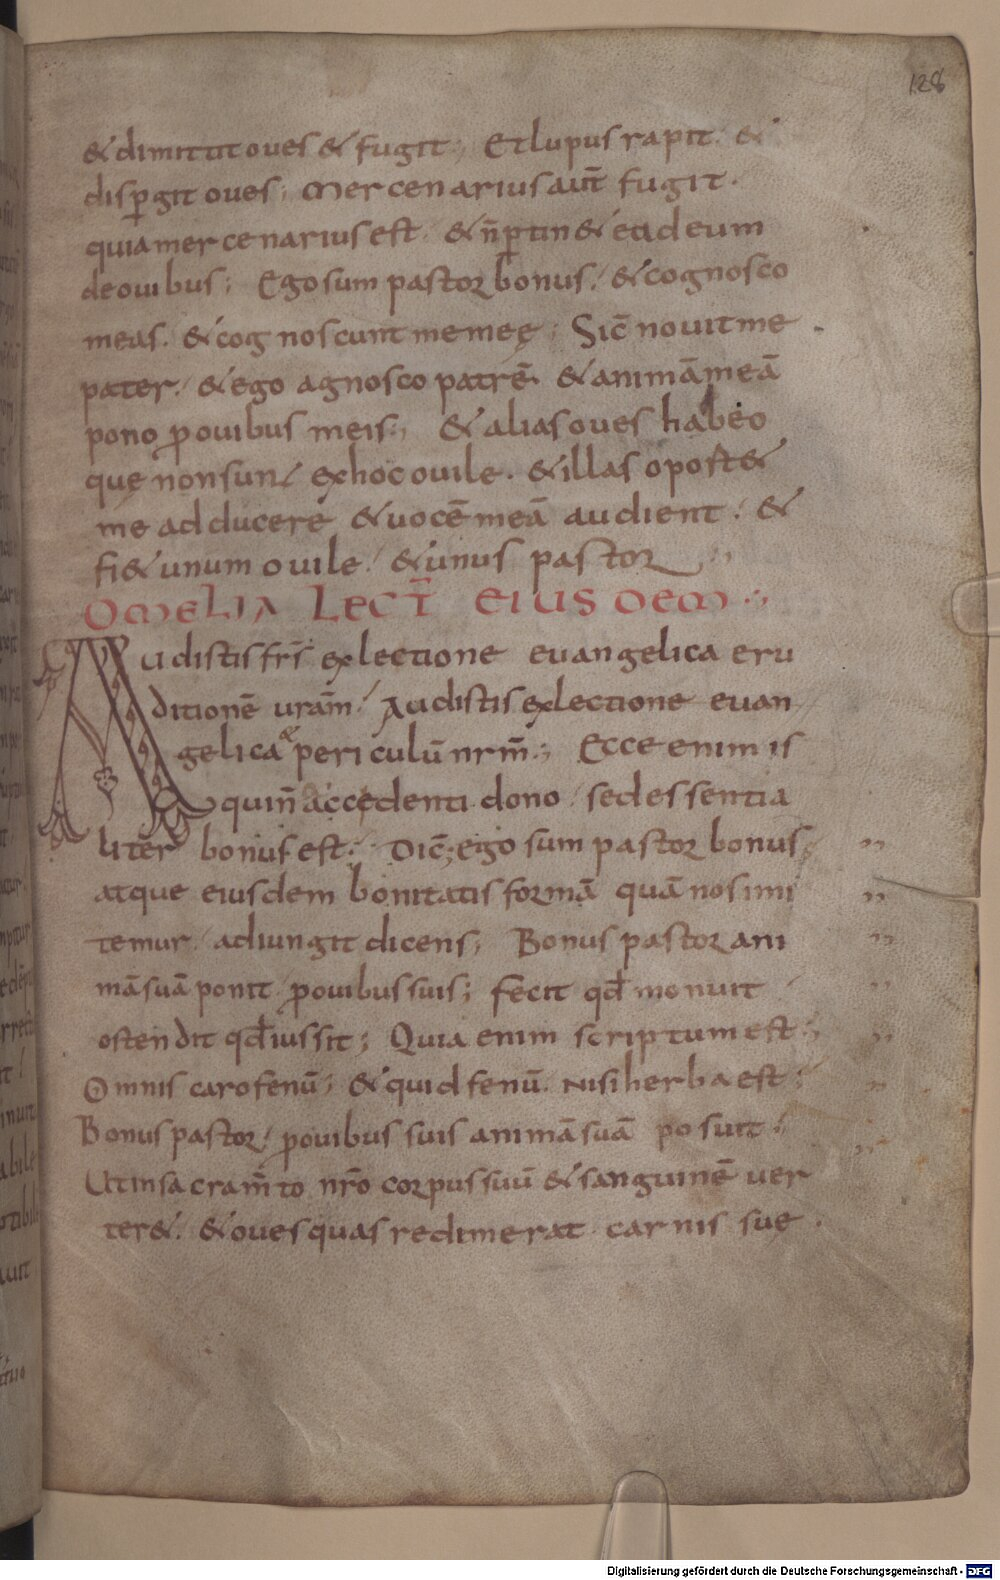 128
& dimittit oues & fugit; Et lupus rapit. &
disp̄git oues; Mercenarius aut̄ fugit.
quia mercenarius est. & n̄ p̄tin& ei de
de ouibus; Ego sum pastor bonus. & cognosco
meas. & cognoscunt me meę; Sic̄ nouit me
pater. & ego agnosco patrē. & animā meā
pono ꝓ ouibus meis; & alias oues habeo
quę non sunt ex hoc ouile. & illas oport&
me adducere & uocē meā audient. &
fi& unum ouile. & unus pastor
OMELIA LECT̄ EIUSDEM
Audistis frs̄ ex lectione euangelica eru
ditionē uram̄. Audistis ex lectione euan
gelica & periculū nrm̄; Ecce enim is
qui n̄ accedenti dono. sed essentia
liter bonus est. Dic̄; ego sum pastor bonus;
atque eiusdem bonitatis formā quā nos imi
temur. adiungit dicens; Bonus pastor ani
mā suā ponit ꝓ ouibus suis; fecit qd̄ monuit
ostendit qd̄ iussit; Quia enim scriptum est;
Omnis caro fenū; & quid fenū. nisi herba est;
Bonus pastor. ꝓ ouibus suis animā suā posuit
Ut in sacram̄to nr̄o corpus suū & sanguinē uer
ter&. & oues quas redimerat carnis suę.
Digitalisierung gefördert durch die Deutsche Forschungsgemeinschaft - DFG